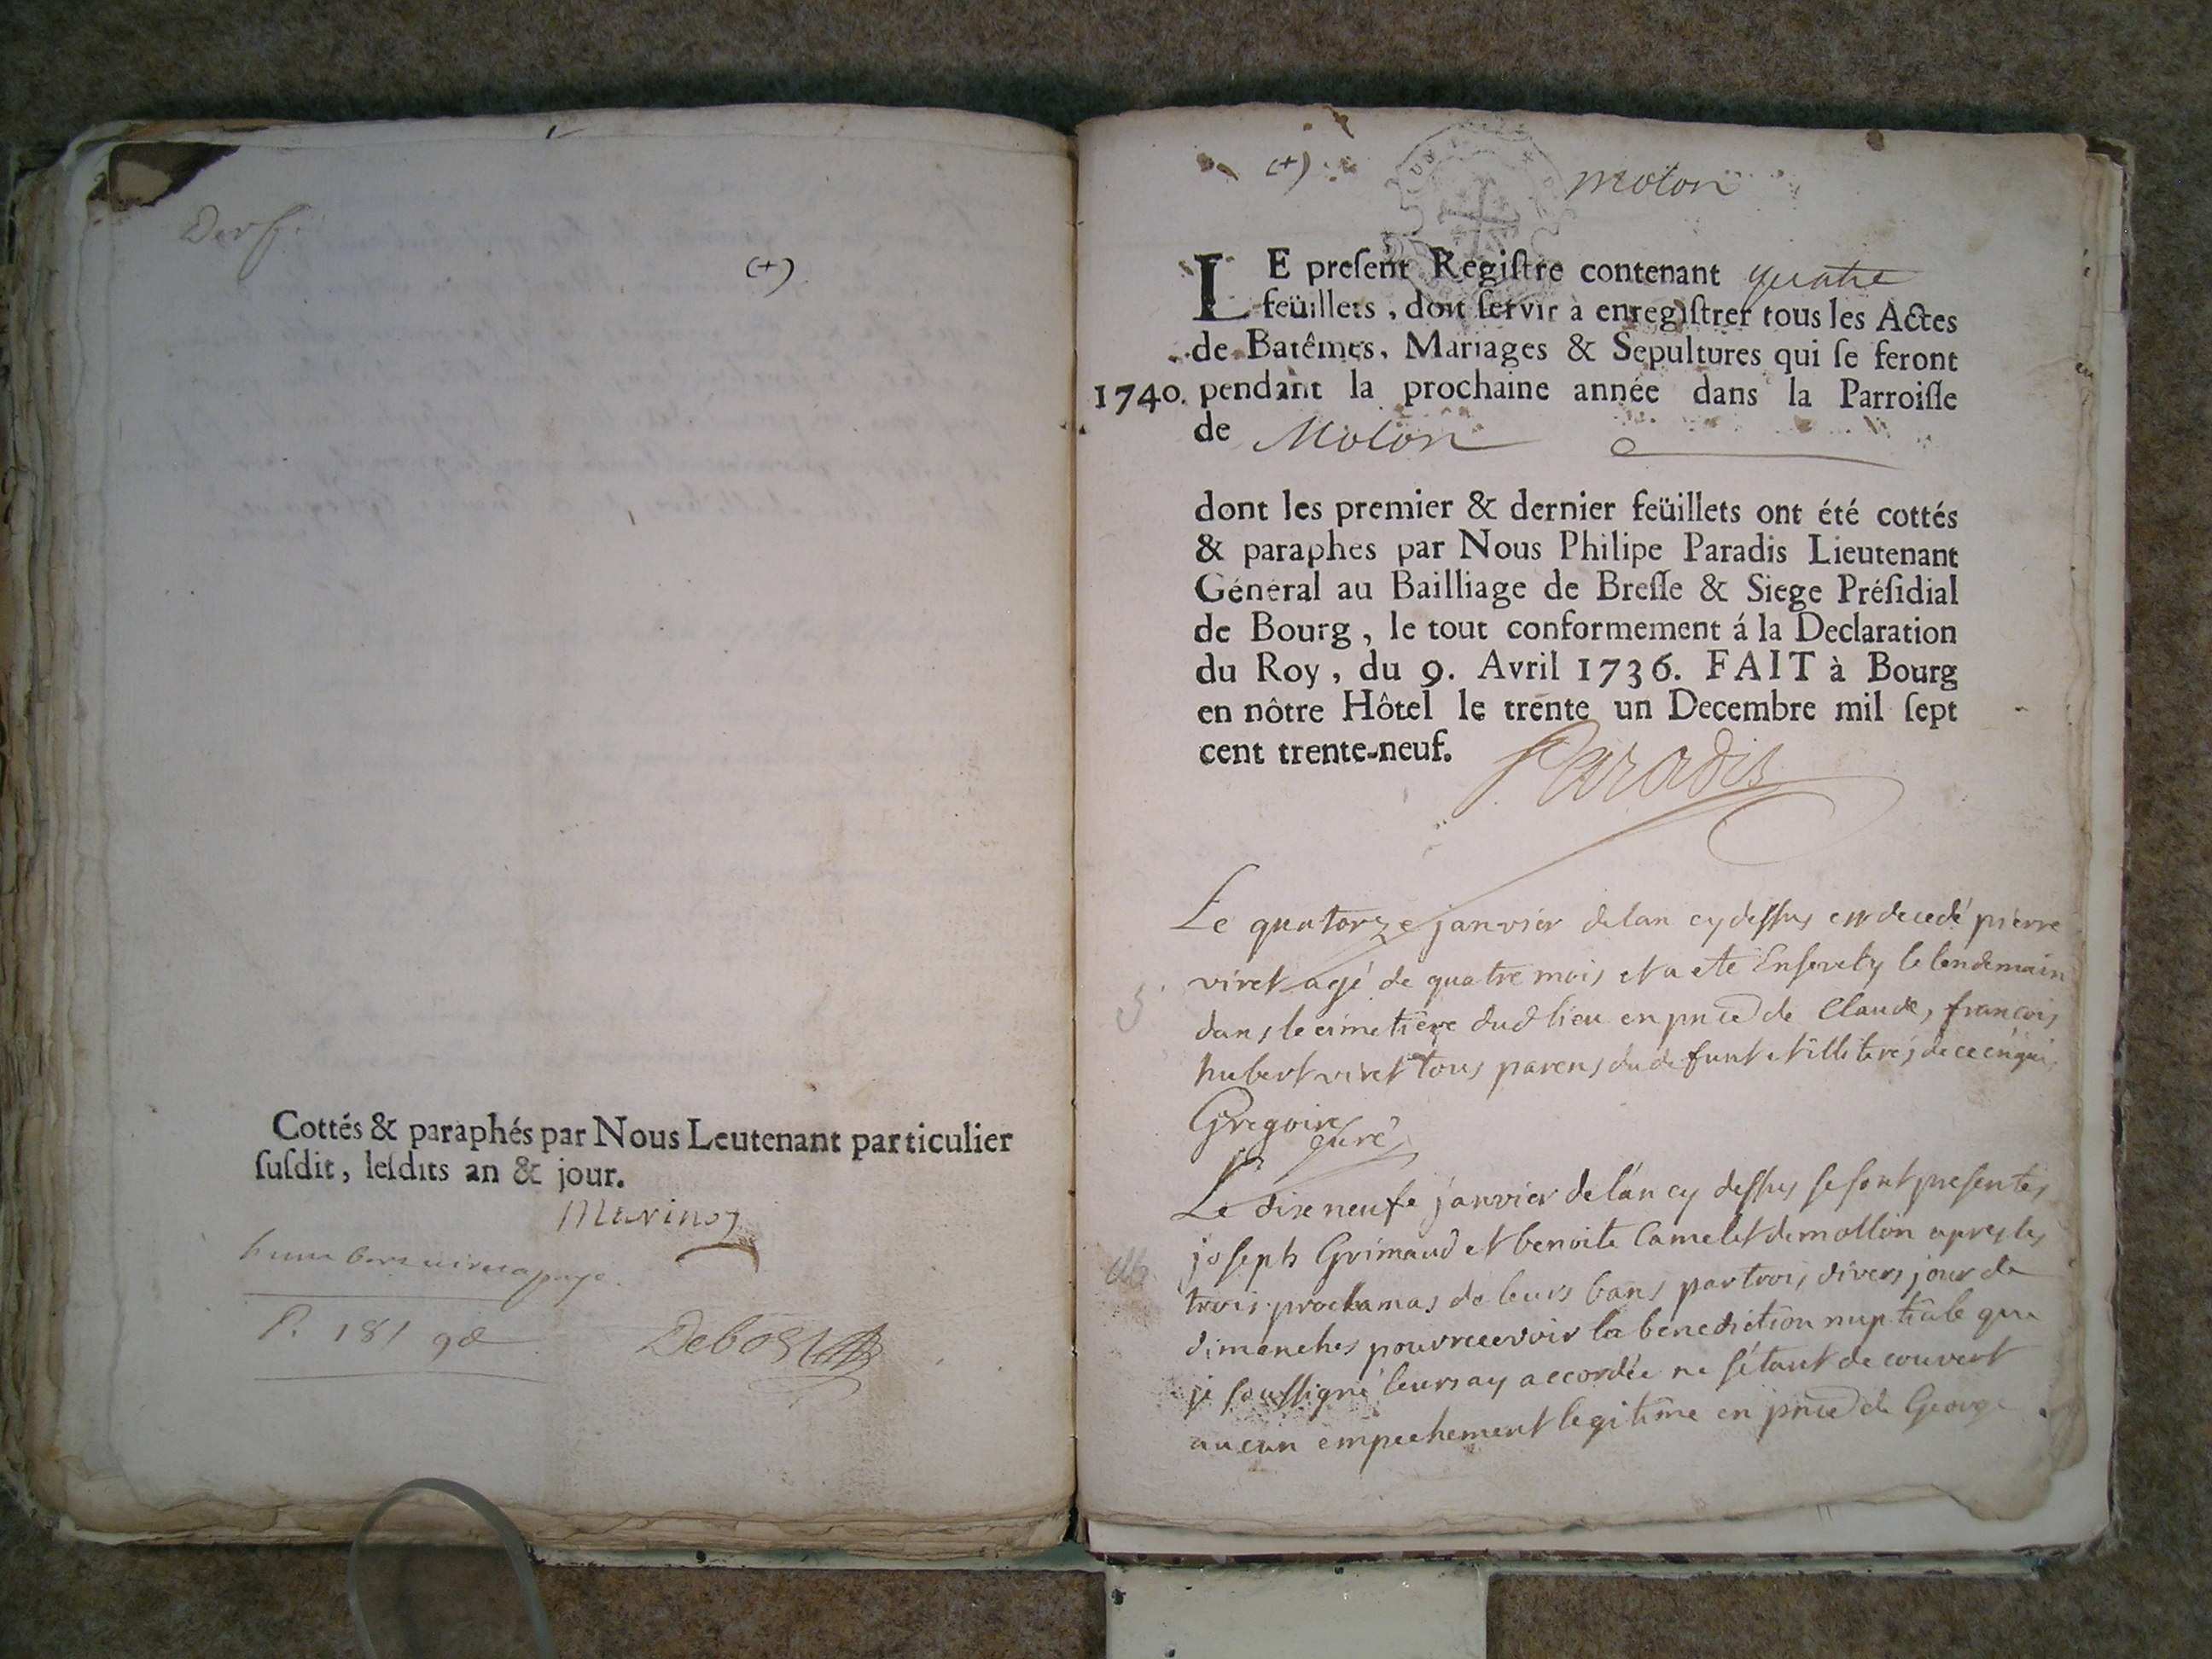 (+)
Cottés & paraphés par Nous Leutenant particulier
ſuſdit, leſdits an & jour.
P. 181 98
Debost
(+) moton
1740.
LE preſent Regiſtre contenant quatre
feüillets, doit ſervir à enregiſtrer tous les Actes
de Batêmes, Mariages & Sepultures qui ſe feront
pendant la prochaine année dans la Parroiſſe
de Molon
dont les premier & dernier feüillets ont été cottés
& paraphes par Nous Philipe Paradis Lieutenant
Général au Bailliage de Breſſe & Siege Préſidial
de Bourg, le tout conformement á la Declaration
du Roy, du 9. Avril 1736. FAIT à Bourg
en nôtre Hôtel le trente un Decembre mil ſept
cent trente-neuf. Paradis
Le quatorze janvier de lan cy deſſus est decedé pierre
viret agé de quatre mois et a ete Enſevely le lendemain
dans le cimetiere dud lieu en pnce de Claude, françois
hubert viret tous parens du defunt et illiterés de ce enquis
Gregoire
curé
Le dixe neufe janvier de lán cy deſſus ſe ſont preſentés
joſeph Grimaud et benoite Camelet de mollon apres les
trois proclamas de leurs bans par trois divers jour de
dimanches pour recevoir la benediction nuptiale que
je ſouſſigné leurs ay accordée ne ſ'étant de couvert
aucun empechement legitime en pnce de George